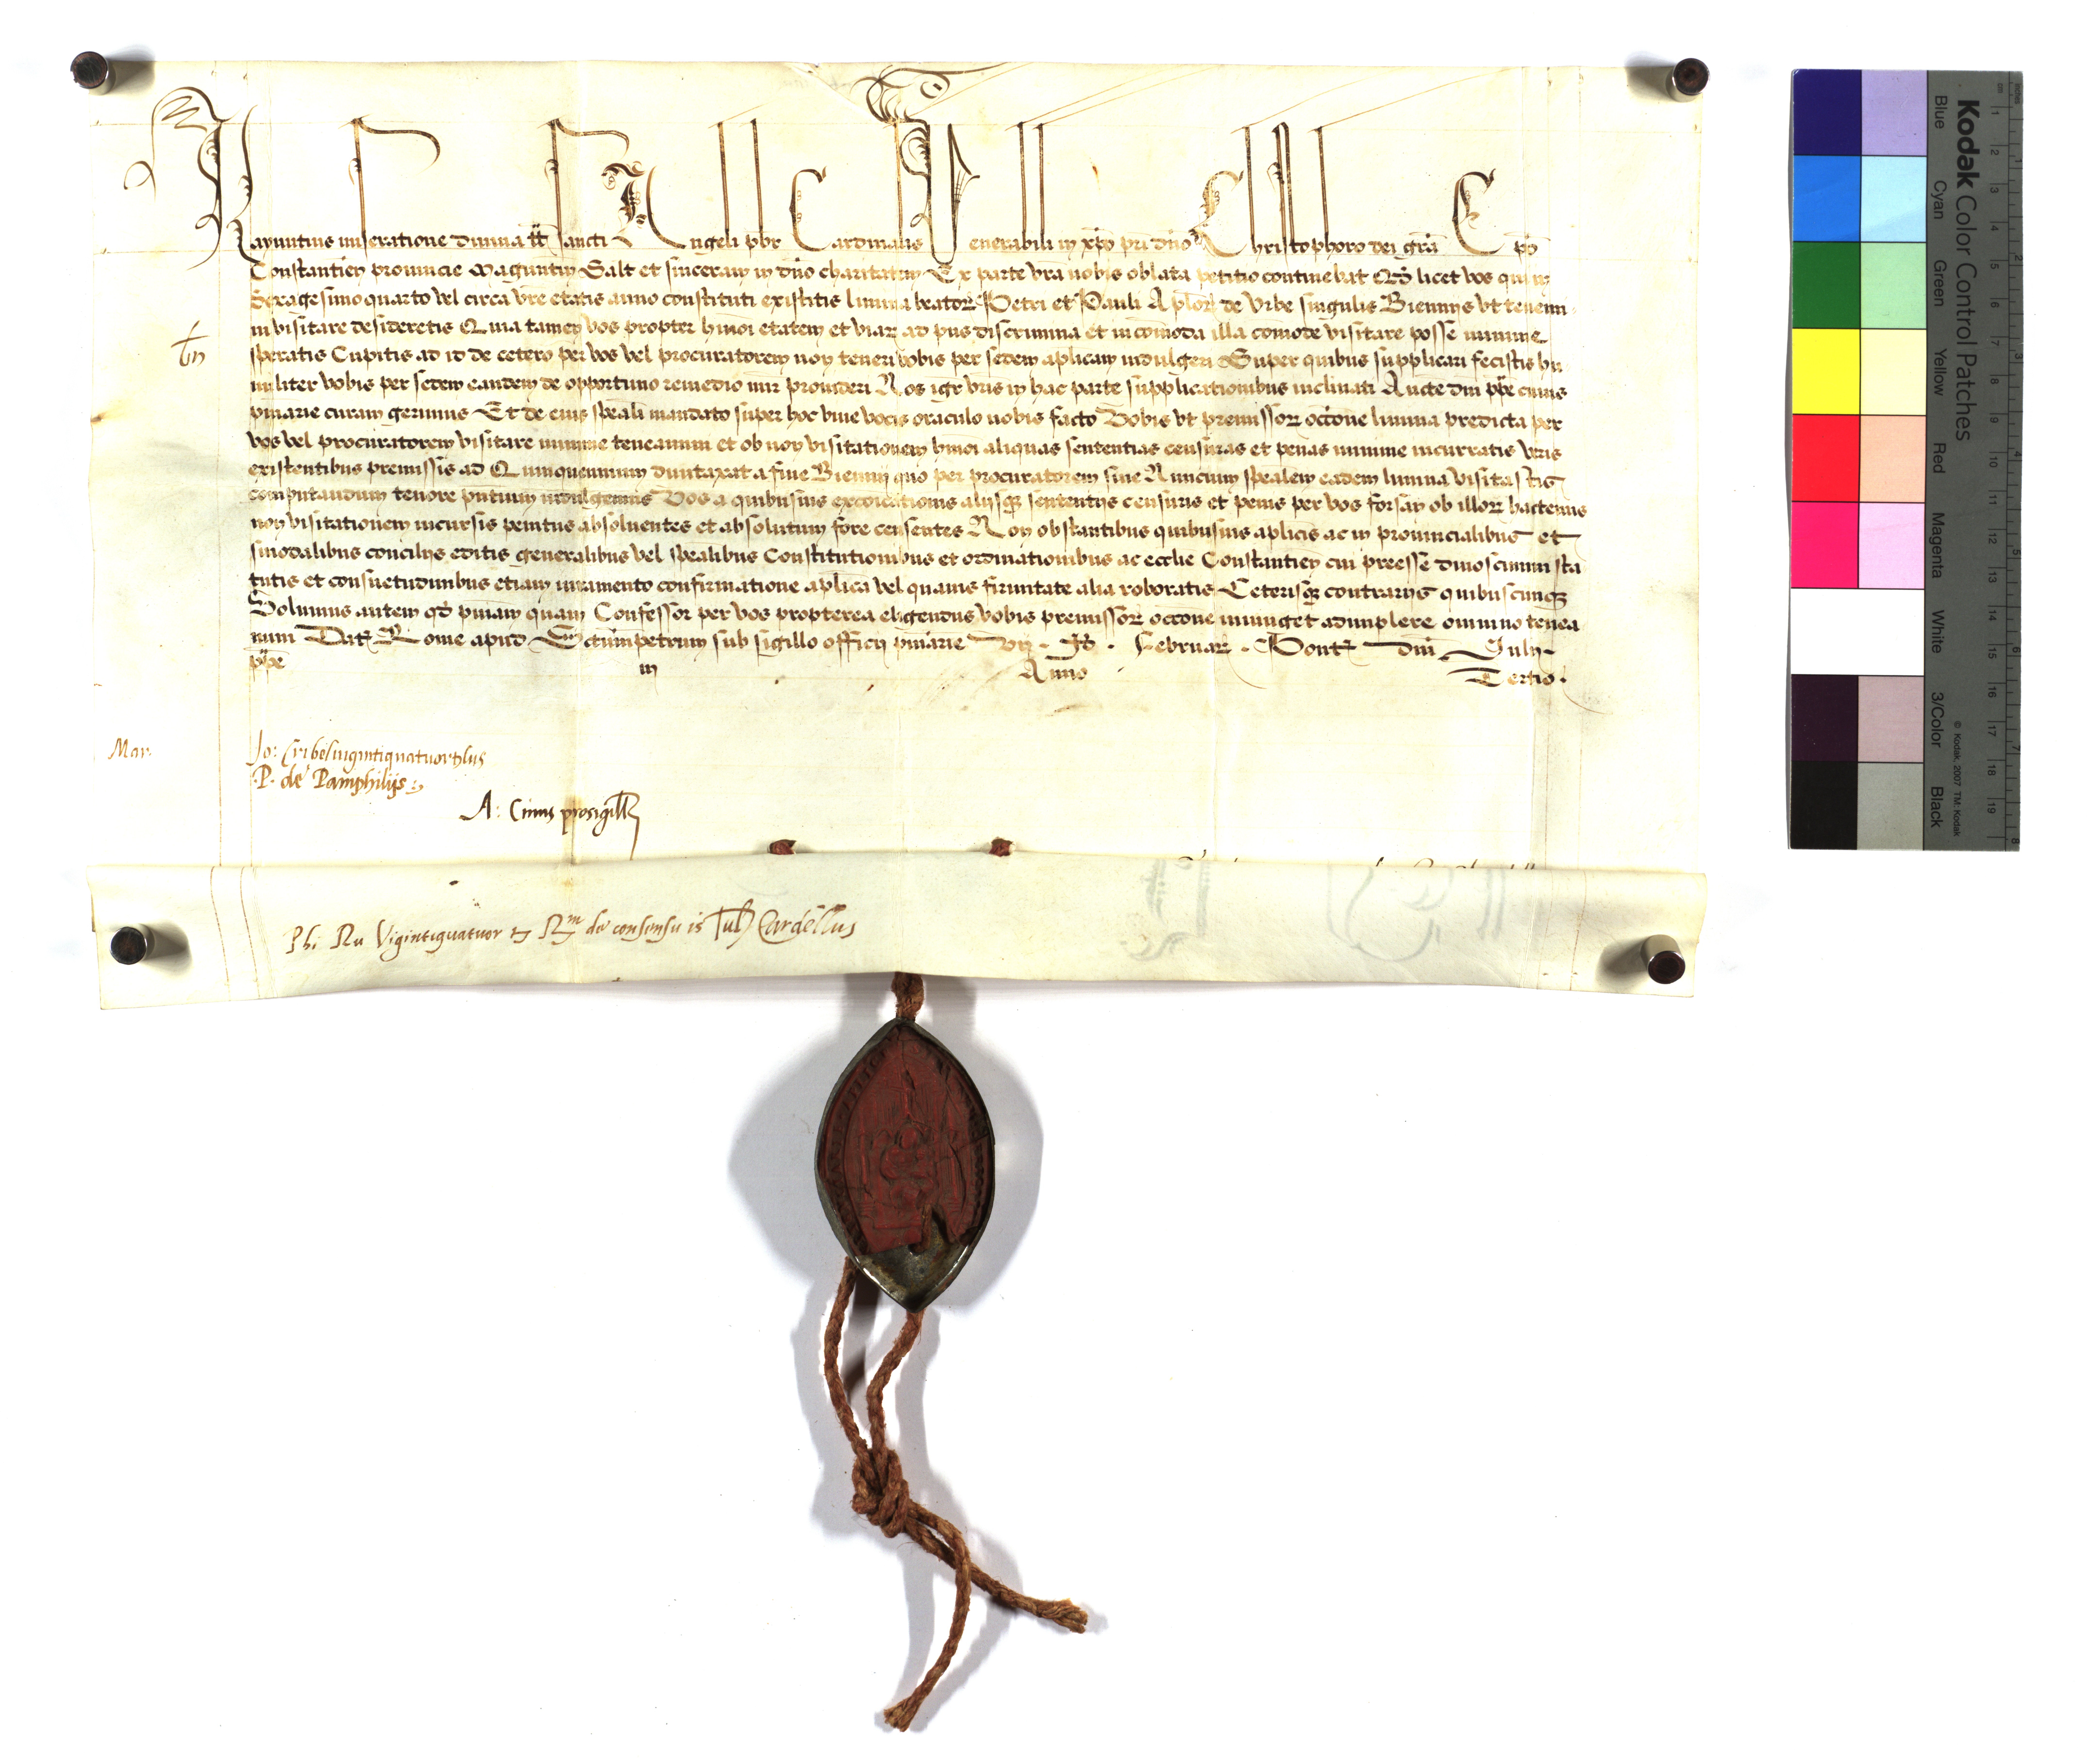 Raynutius miseratione diuina tt̃ Sancti Angeli pbr Cardinalis Venerabili in xp̃o pri dn̄o Christophoro dei gr̃a Ep̃o
Constantien̄ prouincie Maguntin̄ Salt et sinceram in dn̄o charitatem Ex parte vr̃a nobis oblata petitio continebat Qd̄ licet vos qui in
Sexagesimoquarto vel circa vr̃e etatis anno constituti existitis limina beatorꝝ Petri et Pauli Aplorꝝ de Vrbe singulis Bienniis vt tenemi
ni visitare desideretis Quia tamen vos propter hmōi etatem et viarꝝ ad pn̄s discrimina et incōmoda illa comode visitare posse minime
speratis Cupitis ad id de cetero per vos vel procuratorem non teneri vobis per sedem aplicam indulgeri Super quibus supplicari fecistis hu
militer vobis per sedem eandem de opportuno remedio mir prouideri Nos igr vr̃is in hac parte supplicationibus inclinati Aucte dn̄i pp̄e cuius
pn̄iarie curam gerimus Et de eius sp̄eali mandato super hoc viue vocis oraculo nobis facto Vobis vt premissorꝝ occōne limina predicta per
vos vel procuratorem visitare minime teneamini et ob non visitationem hmōi aliquas sententias censuras et penas minime incurratis vr̃is
existentibus premissis ad Quinquennium duntaxat a fine Biennij quo per procuratorem siue Nuncium sp̄ealem eadem limina visitastis
computandum tenore pn̄tium indulgemus Vos a quibusuis excōicationis alijsqꝫ sententijs censuris et penis per vos forsan ob illorꝝ hactenus
non visitationem incursis penitus absoluentes et absolutum fore censentes Non obstantibus quibusuis aplicis ac in prouincialibus et
sinodalibus concilijs editis generalibus vel sp̄ealibus Constitutionibus et ordinationibus ac ecclie Constantien̄ cui preesse dinoscimini sta
tutis et consuetudinibus etiam iuramento confirmatione aplica vel quauis firmitate alia roboratis Ceterisqꝫ contrarijs quibuscunqꝫ
Volumus autem qd̄ pn̄iam quam Confessor per vos propterea eligendus vobis premissorꝝ occōne iniunget adimplere omnino tenea
mini Datꝫ Rome apud Sctūmpetrum sub sigillo officij pn̄iarie vij . Id . Februarꝫ . Pontꝫ dn̄i Iulij
pp̄e iij Anno Tertio .
Mar.
P. de Pamphilijs
A: Cinus prosigill
Phi Ru Vigintiquatuor de consensu is Iul Cardellus
Kodak Color Control Patches
Blue Cyan Green Yellow Red Magenta White 3/Color Black
© Kodak, 2007 TM: Kodak
cm 1 2 3 4 5 6 7 8 9 10 11 12 13 14 15 16 17 18 19